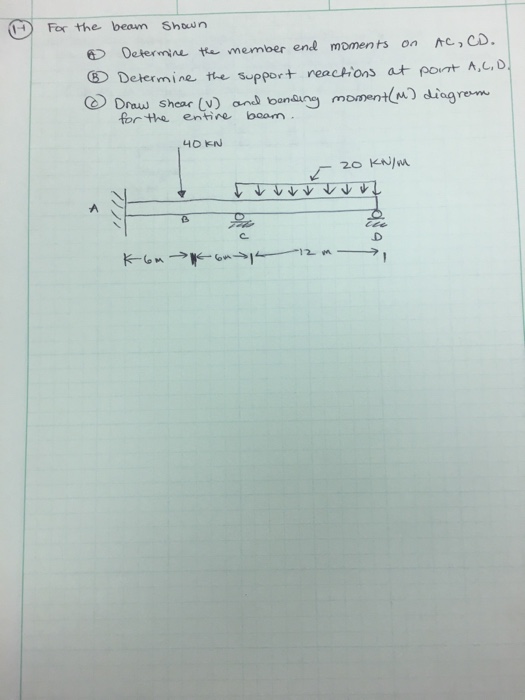 1-1 For the beam Shown
(A) Determine the member end moments on AC, CD.
(B) Determine the support reactions at point A, C, D.
(C) Draw shear (V) and bending moment (M) diagram
for the entire beam.
40 KN
20 KN/m
A
B
C
D
6m 6m 12 m